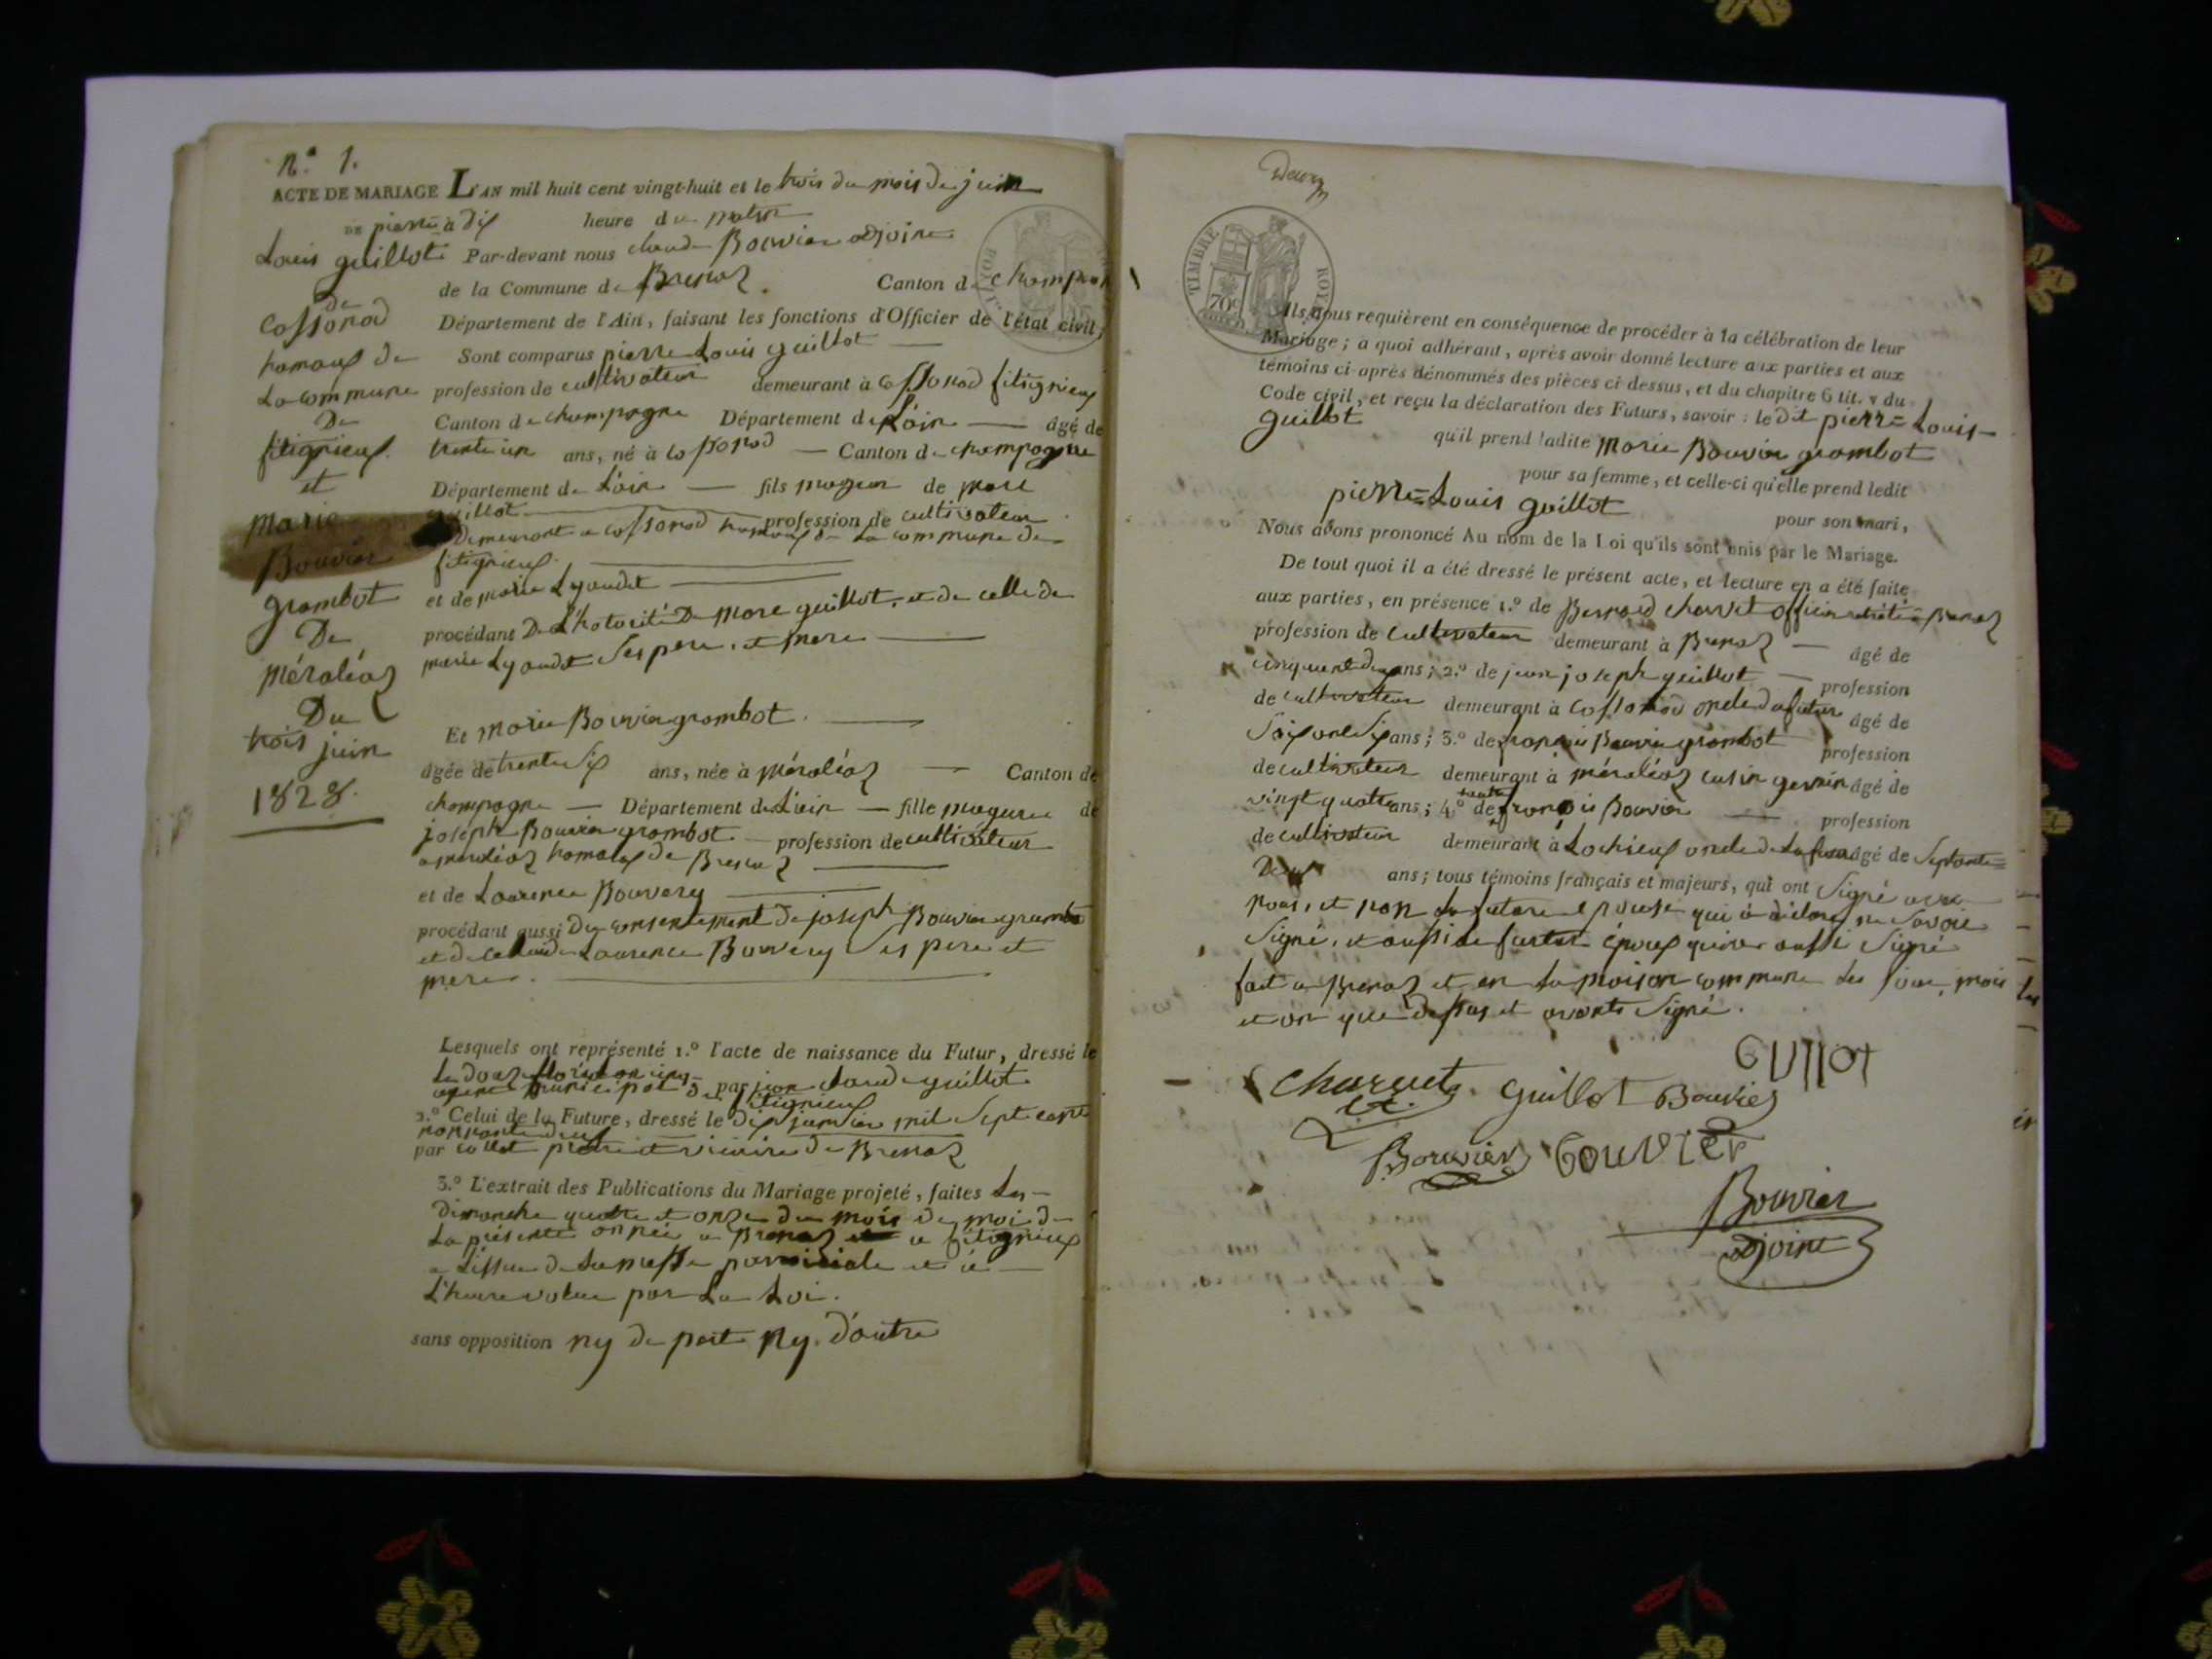 n.° 1.
ACTE DE MARIAGE L'AN mil huit cent vingt-huit et le trois du mois de juin
DE pierre à dix heure du matin
Louis guillot Par-devant nous claude Bouvier adjoint
de la Commune de Brenaz. Canton de champagne
de
Cossonod Département de l'Ain, faisant les fonctions d'Officier de l'état civil,
hamaux de Sont comparus pierre Louis guillot
La commune profession de cultivateur demeurant à Cossonod fitignieux
De Canton de champagne Département de L'ain âgé de
fitignieux. trente un ans, né à Cossonod Canton de champagne
et Département de L'ain fils mageur de marc
marie guillot profession de cultivateur
Demeurant a Cossonod hamaux de La commune de
Bouvier fitignieux.
grambot et de marie Lyaudet
De procédant De L'hotorité De marc guillot, et de celle de
méraléaz marie Lyaudet Ses pere, et mere
Du
trois juin Et marie Bouvier grambot.
1828. âgée de trente Six ans, née à méraléaz Canton de
champagne Département de L'ain fille mageure de
joseph Bouvier grambot profession de cultivateur
a méraléaz hamaux de Brenaz
et de Laurence Bouvery
procédant aussi Du consentement de joseph Bouvier grambot
et de celui de Laurence Bouvery Ses pere et
mere.
Lesquels ont représenté 1.° l'acte de naissance du Futur, dressé le
Le douze floréal an cinq
agent municipal de par jean claude guillot
fitignieux
2.° Celui de la Future, dressé le Dix janvier mil Sept cent
nonnante deux
par collet pretre et vicaire de Brenaz
3.° L'extrait des Publications du Mariage projeté, faites Les
Dimanche quatre et onze du mois de mai de
La présente année a Brenaz et a fitignieux
a L'issue de La messe parroissiale et à
L'heure volue par La Loi.
sans opposition ny de part ny d'autre
TIMBRE ROYAL
70c
Ils nous requièrent en conséquence de procéder à la célébration de leur
Mariage; à quoi adhérant, après avoir donné lecture aux parties et aux
témoins ci-après dénommés des pièces ci-dessus, et du chapitre 6 tit. v du
Code civil, et reçu la déclaration des Futurs, savoir: le dit pierre Louis
guillot qu'il prend ladite marie Bouvier grambot
pour sa femme, et celle-ci qu'elle prend ledit
pierre Louis guillot pour son mari,
Nous avons prononcé Au nom de la Loi qu'ils sont unis par le Mariage.
De tout quoi il a été dressé le présent acte, et lecture en a été faite
aux parties, en présence 1.° de Bernard charvet officier retraité a Brenaz
profession de cultivateur demeurant à Brenaz âgé de
cinquante deux ans; 2.° de jean joseph guillot profession
de cultivateur demeurant à Cossonod oncle du futur âgé de
Soixante Six ans; 3.° de françois Bouvier grambot profession
de cultivateur demeurant à méraléaz cusin germin âgé de
vingt quatre ans; 4.° de françois Bouvier profession
de cultivateur demeurant à Lochieux oncle de La future âgé de Septante
Deux ans; tous témoins français et majeurs, qui ont Signé avec
nous, et non La future épouse qui à déclaré ne Savoir
Signé, et aussi le futur époux qui a aussi Signé
fait a Brenaz et en La maison commune Les jour, mois
et an que dessus et avons Signé.
GUILLOT
Charvet guillot Bouvier
Bouvier BOUVIER
Bouvier
adjoint